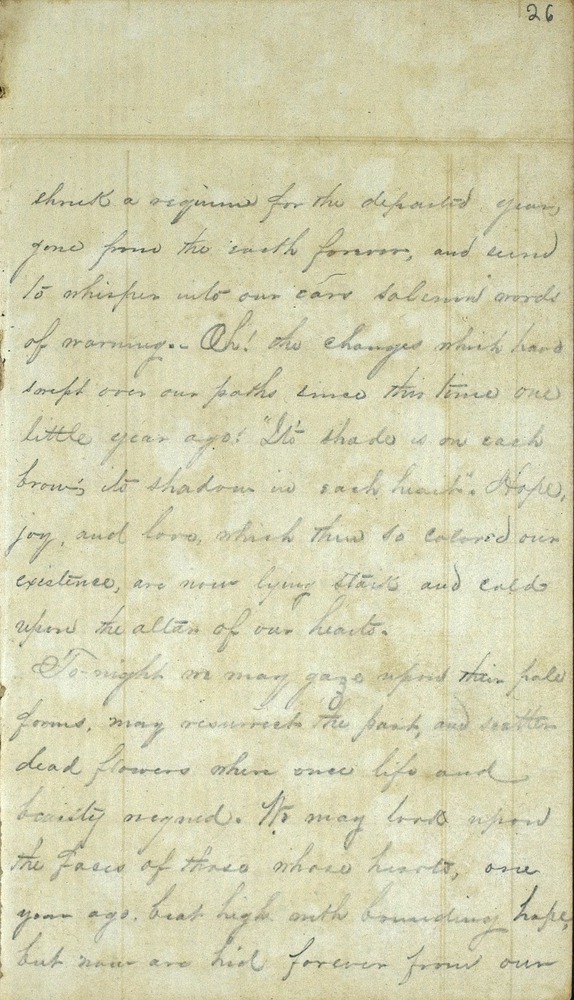 26
shriek a requium for the departed year,
gone from the earth forever, and seem
to whisper into our ears solemn words
of warning. Oh! the changes which have
swept over our paths since this time one
little year ago! "Its shade is on each
brow, its shadow in each heart". Hope,
joy, and love, which then so colored our
existence, are now lying stark and cold
upon the altar of our hearts.
To-night we may gaze upon their pale
forms, may resurrect the past, and scatter
dead flowers where once life and
beauty reigned. We may look upon
the faces of those whose hearts, one
year ago, beat high with bounding hope,
but now are hid forever from our